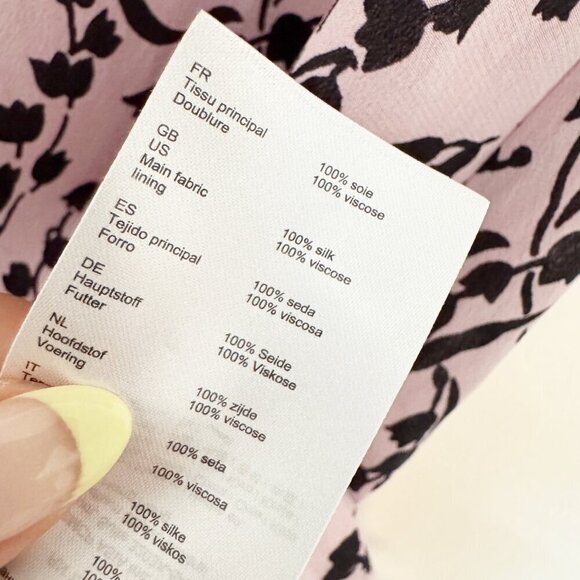 FR
Tissu principal 100% soie
Doublure 100% viscose
GB
US
Main fabric 100% silk
lining 100% viscose
ES
Tejido principal 100% seda
Forro 100% viscosa
DE
Hauptstoff 100% Seide
Futter 100% Viskose
NL
Hoofdstof 100% zijde
Voering 100% viscose
IT
100% seta
100% viscosa
100% silke
100% viskos
100%
100%